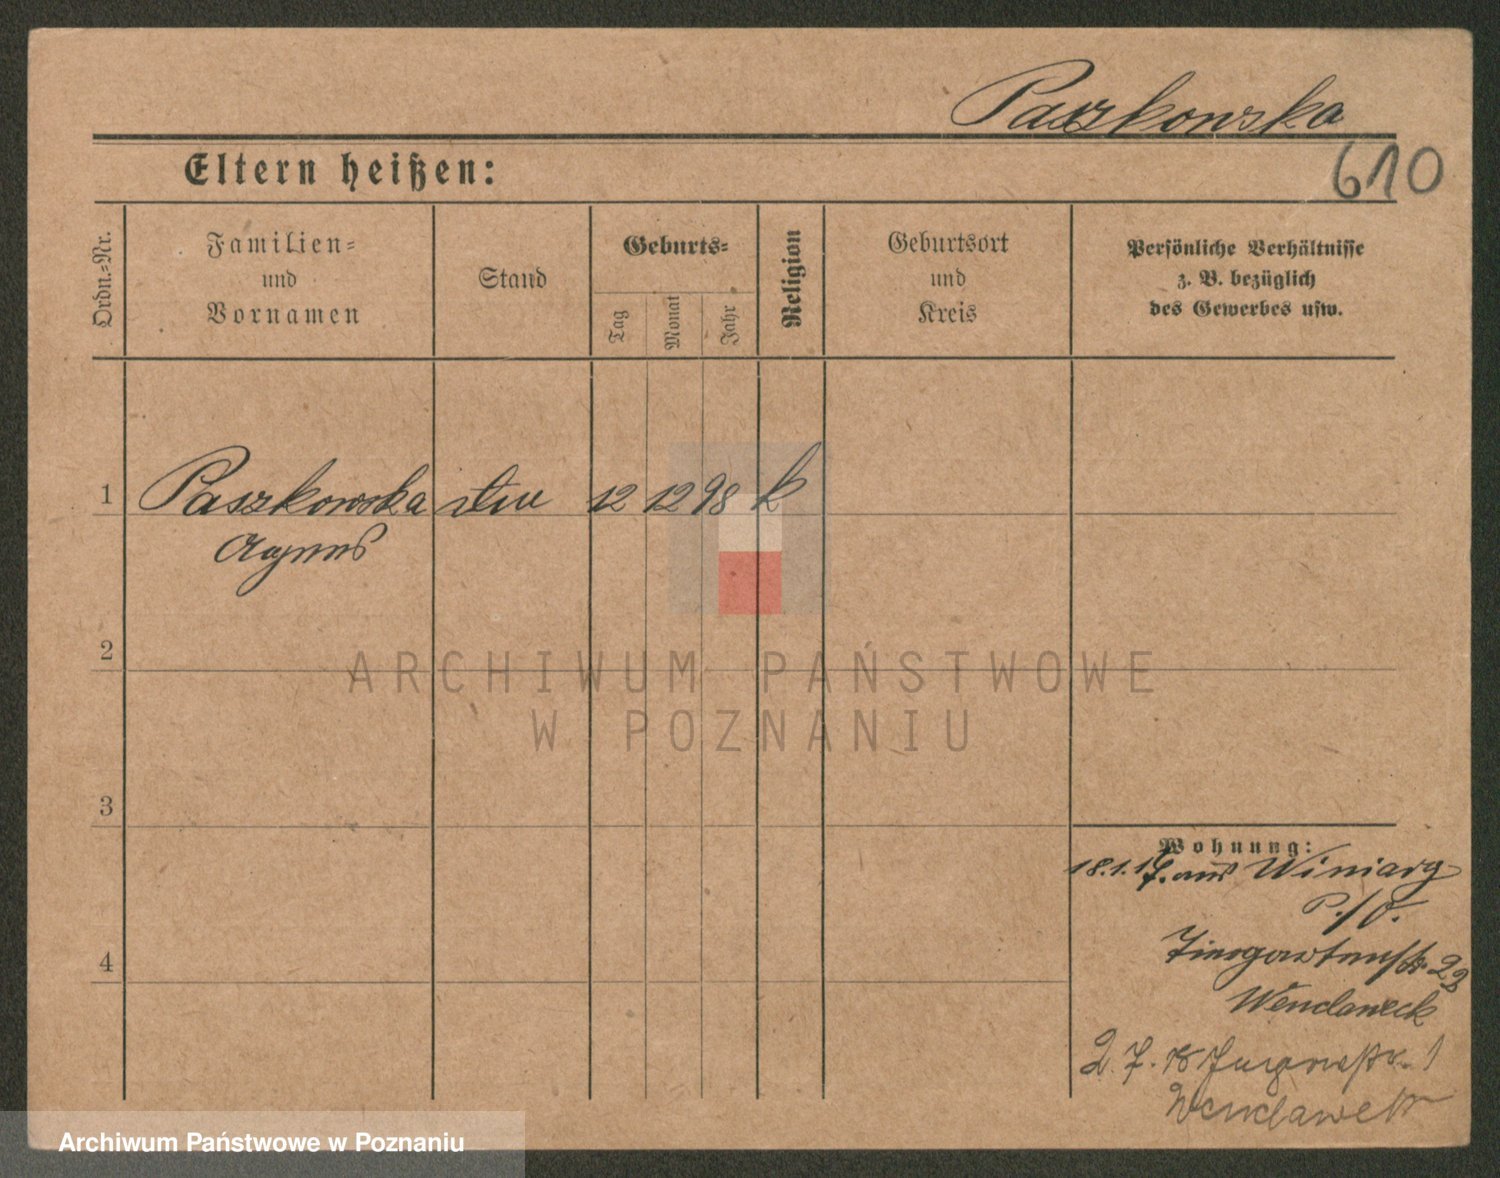 Paszkowska
610
Eltern heißen:
Ordn.=Nr.
Familien=
und
Vornamen
Stand
Geburts=
Tag
Monat
Jahr
Religion
Geburtsort
und
Kreis
Persönliche Verhältnisse
z. B. bezüglich
des Gewerbes usw.
1 Paszkowska 12 12 98 k
Agnes
2
3
4
ARCHIWUM PAŃSTWOWE
W POZNANIU
Wohnung:
18.1.17. aus Winiary
P./O.
Tiergartenstr. 22
Wenclaweck
2.7.18 1
Wenclaweck
Archiwum Państwowe w Poznaniu